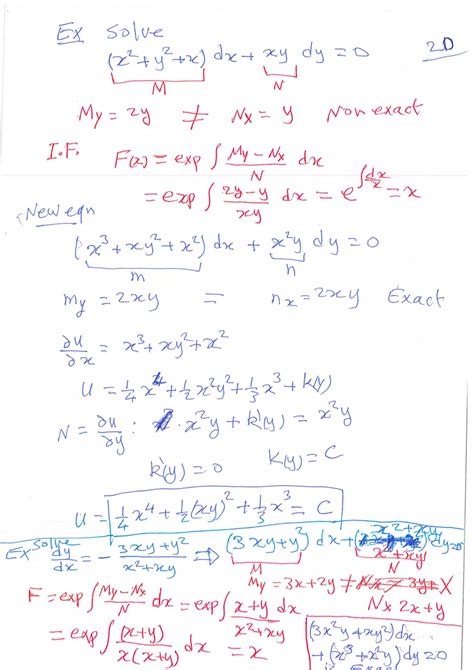 Ex Solve
20
(x² + y² + x) dx + xy dy = 0
M N
My = 2y ≠ Nx = y Non exact
I.F. F(x) = exp ∫ (My − Nx)/N dx
= exp ∫ (2y − y)/(xy) dx = e^∫dx/x = x
New eqn
(x³ + xy² + x²) dx + x²y dy = 0
m n
my = 2xy = nx = 2xy Exact
∂u/∂x = x³ + xy² + x²
U = 1/4 x⁴ + 1/2 x²y² + 1/3 x³ + k(y)
N = ∂u/∂y : x²y + k'(y) = x²y
k'(y) = 0 k(y) = C
U = 1/4 x⁴ + 1/2 (xy)² + 1/3 x³ = C
Ex Solve dy/dx = − (3xy + y²)/(x² + xy) ⇒ (3xy + y²) dx + (x² + xy) dy = 0
M x² + xy N
My = 3x + 2y ≠ Nx = 2x + y
F = exp ∫ (My − Nx)/N dx = exp ∫ (x + y)/(x² + xy) dx
= exp ∫ (x + y)/(x(x + y)) dx = x
(3x²y + xy²) dx
+ (x³ + x²y) dy = 0
Exact